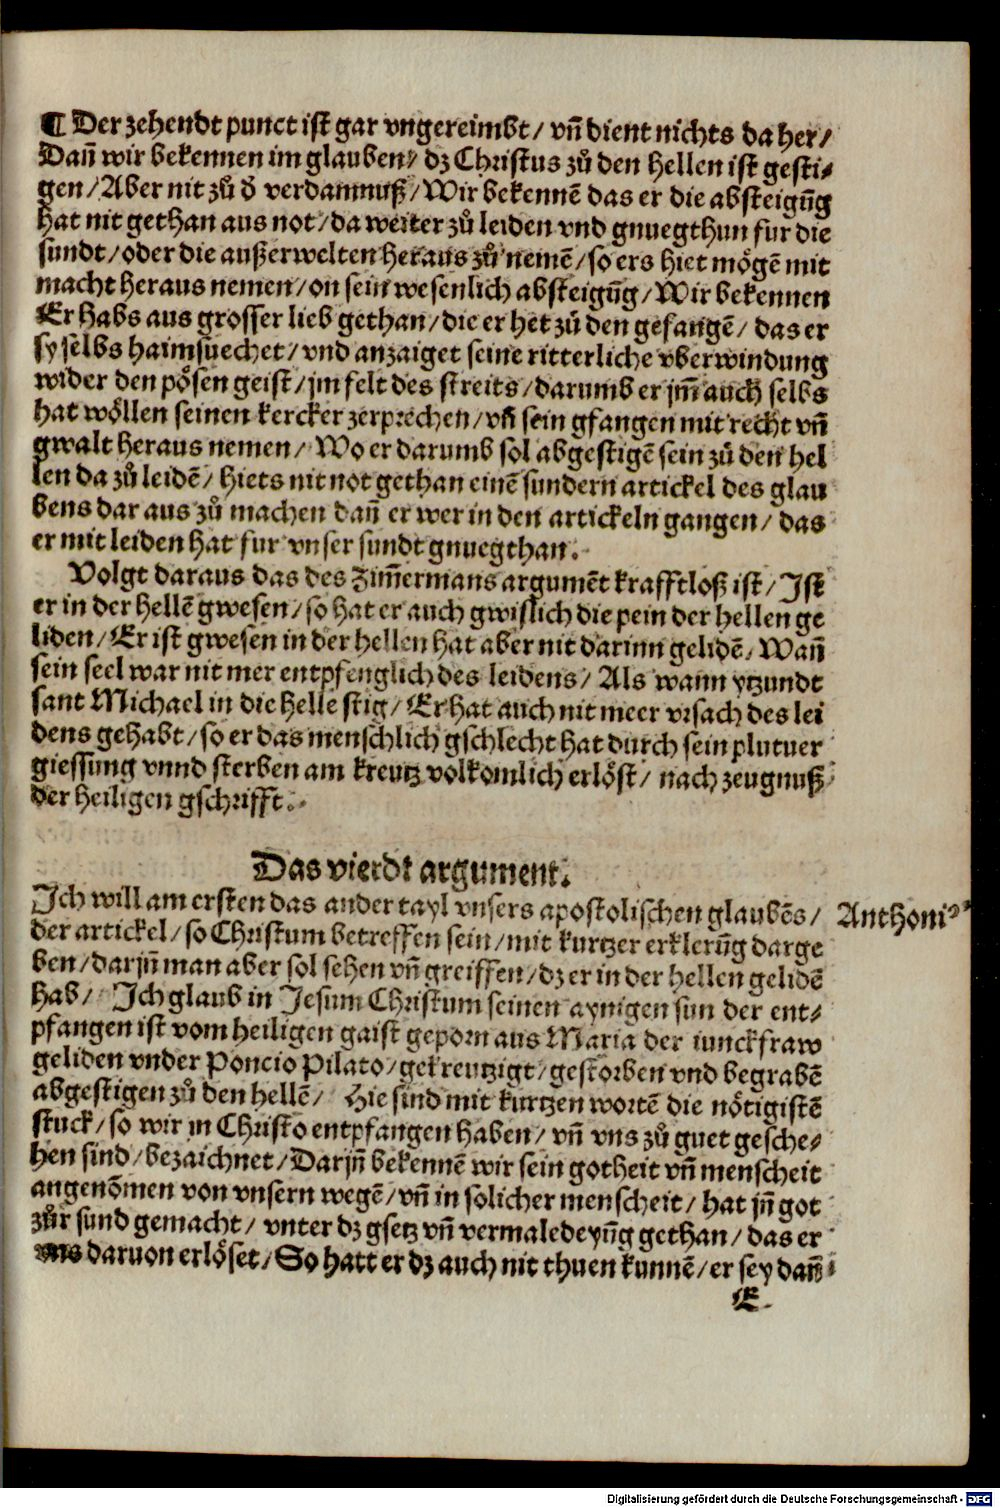 ¶ Der zehendt punct ist gar vngereimbt / vñ dient nichts da her /
Dañ wir bekennen im glauben / dz Christus zů den hellen ist gesti⸗
gen / Aber nit zů d̄ verdamnuß / Wir bekennē das er die absteigūg
hat nit gethan aus not / da weiter zů leiden vnd gnuegthun fur die
sundt / oder die außerwelten heraus zů nemē / so ers hiet mögē mit
macht heraus nemen / on sein wesenlich absteigūg / Wir bekennen
Er habs aus grosser lieb gethan / die er het zů den gefangē / das er
sy selbs haimsuechet / vnd anzaiget seine ritterliche vberwindung
wider den pösen geist / jm felt des streits / darumb er jm̄ auch selbs
hat wöllen seinen kercker zerprechen / vñ sein gfangen mit recht vñ
gwalt heraus nemen / Wo er darumb sol abgestigē sein zů den hel
len da zů leidē / hiets nit not gethan einē sundern artickel des glau
bens dar aus zů machen dañ er wer in den artickeln gangen / das
er mit leiden hat fur vnser sundt gnuegthan.
Volgt daraus das des Zim̄ermans argumēt krafftloß ist / Ist
er in der hellē gwesen / so hat er auch gwislich die pein der hellen ge
liden / Er ist gwesen in der hellen hat aber nit darinn gelidē / Wañ
sein seel war nit mer entpfenglich des leidens / Als wann ytzundt
sant Michael in die helle stig / Er hat auch nit meer vrsach des lei
dens gehabt / so er das menschlich gschlecht hat durch sein plutuer
giessung vnnd sterben am kreutz volkomlich erlöst / nach zeugnuß
der heiligen gschrifft.
Das vierdt argument.
Ich will am ersten das ander tayl vnsers apostolischen glaubēs /
Anthoniꝰ
der artickel / so Christum betreffen sein / mit kurtzer erklerūg darge
ben / darjñ man aber sol sehen vñ greiffen / dz er in der hellen gelidē
hab / Ich glaub in Jesum Christum seinen aynigen sun der ent⸗
pfangen ist vom heiligen gaist geporn aus Maria der iunckfraw
geliden vnder Poncio Pilato / gekreutzigt / gestorben vnd begrabē
abgestigen zů den hellē / Hie sind mit kurtzen wortē die nötigistē
stuck / so wir in Christo entpfangen haben / vñ vns zů guet gesche⸗
hen sind / bezaichnet / Darjñ bekennē wir sein gotheit vñ menscheit
angenōmen von vnsern wegē / vñ in solicher menscheit / hat jñ got
zůr sund gemacht / vnter dz gsetz vñ vermaledeyūg gethan / das er
vns daruon erlöset / So hatt er dz auch nit thuen kunnē / er sey dañ
E
Digitalisierung gefördert durch die Deutsche Forschungsgemeinschaft - DFG